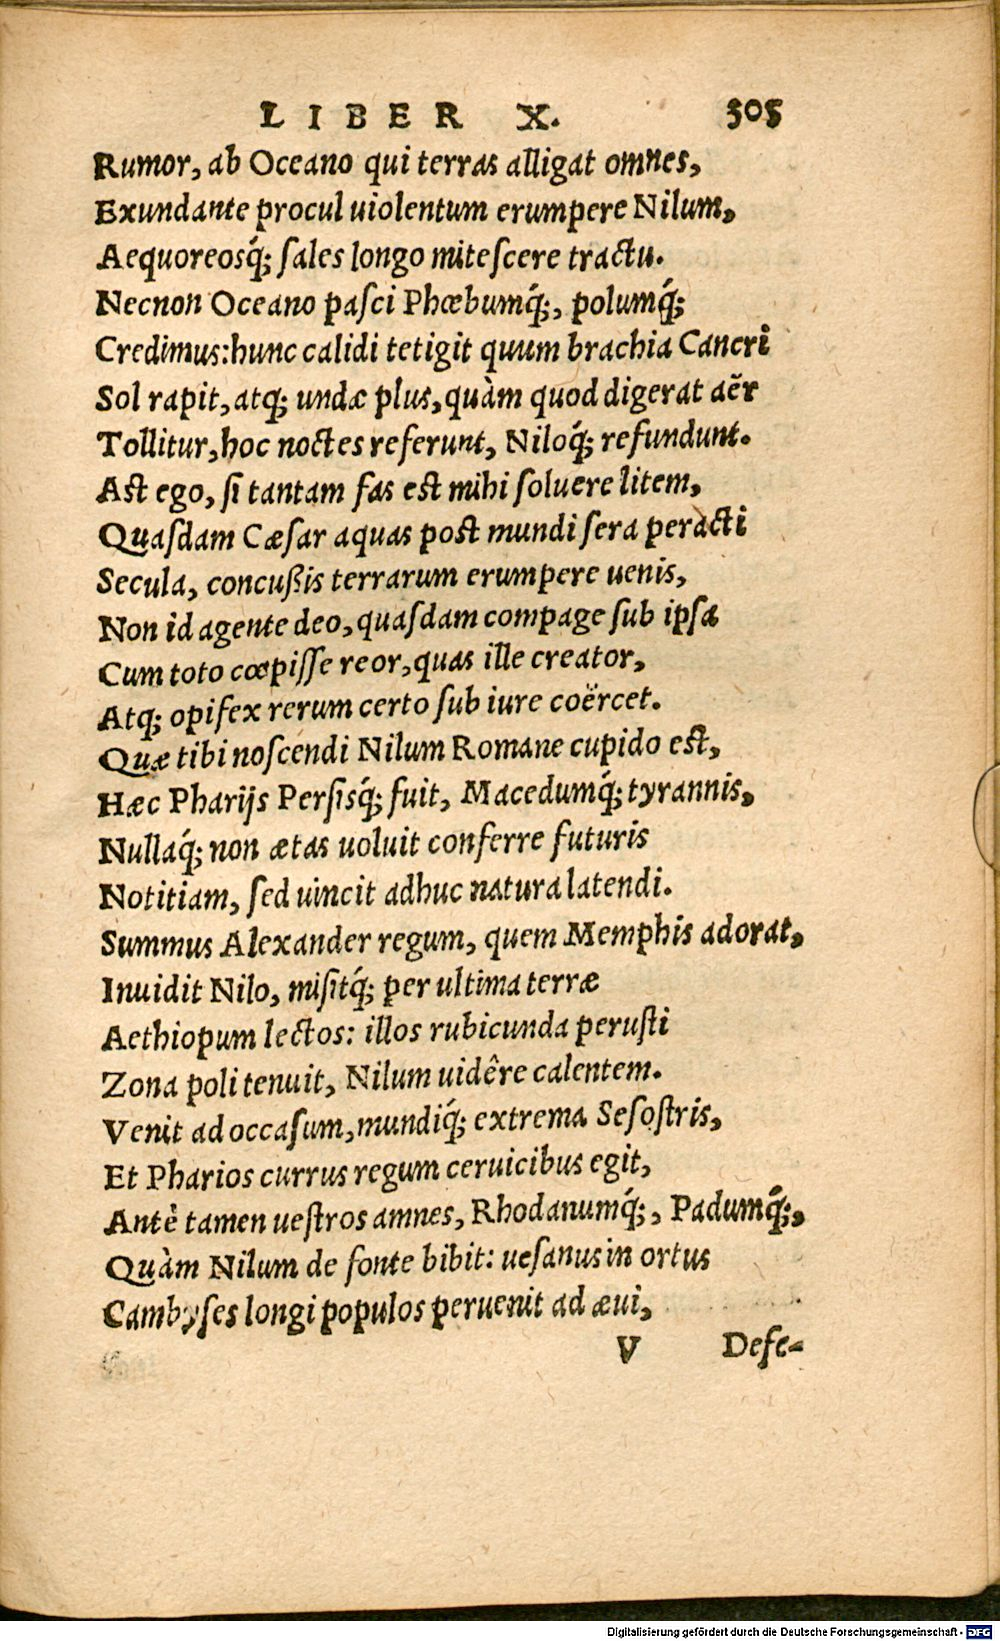 LIBER X. 305
Rumor, ab Oceano qui terras alligat omnes,
Exundante procul uiolentum erumpere Nilum,
Aequoreosq́; ſales longo miteſcere tractu.
Necnon Oceano paſci Phœbumq́;, polumq́;
Credimus: hunc calidi tetigit quum brachia Cancri
Sol rapit, atq; undæ plus, quàm quod digerat aër
Tollitur, hoc noctes referunt, Niloq́; refundunt.
Aſt ego, ſi tantam fas eſt mihi ſoluere litem,
Quaſdam Cæſar aquas poſt mundi ſera peracti
Secula, concußis terrarum erumpere uenis,
Non id agente deo, quaſdam compage ſub ipſa
Cum toto cœpiſſe reor, quas ille creator,
Atq; opifex rerum certo ſub iure coërcet.
Quæ tibi noſcendi Nilum Romane cupido eſt,
Hæc Pharijs Perſisq́; fuit, Macedumq́; tyrannis,
Nullaq́; non ætas uoluit conferre futuris
Notitiam, ſed uincit adhuc natura latendi.
Summus Alexander regum, quem Memphis adorat,
Inuidit Nilo, miſitq́; per ultima terræ
Aethiopum lectos: illos rubicunda peruſti
Zona poli tenuit, Nilum uidêre calentem.
Venit ad occaſum, mundiq́; extrema Seſoſtris,
Et Pharios currus regum ceruicibus egit,
Antè tamen ueſtros amnes, Rhodanumq́;, Padumq́;,
Quàm Nilum de fonte bibit: ueſanus in ortus
Cambyſes longi populos peruenit ad æui,
V Defe-
Digitalisierung gefördert durch die Deutsche Forschungsgemeinschaft - DFG